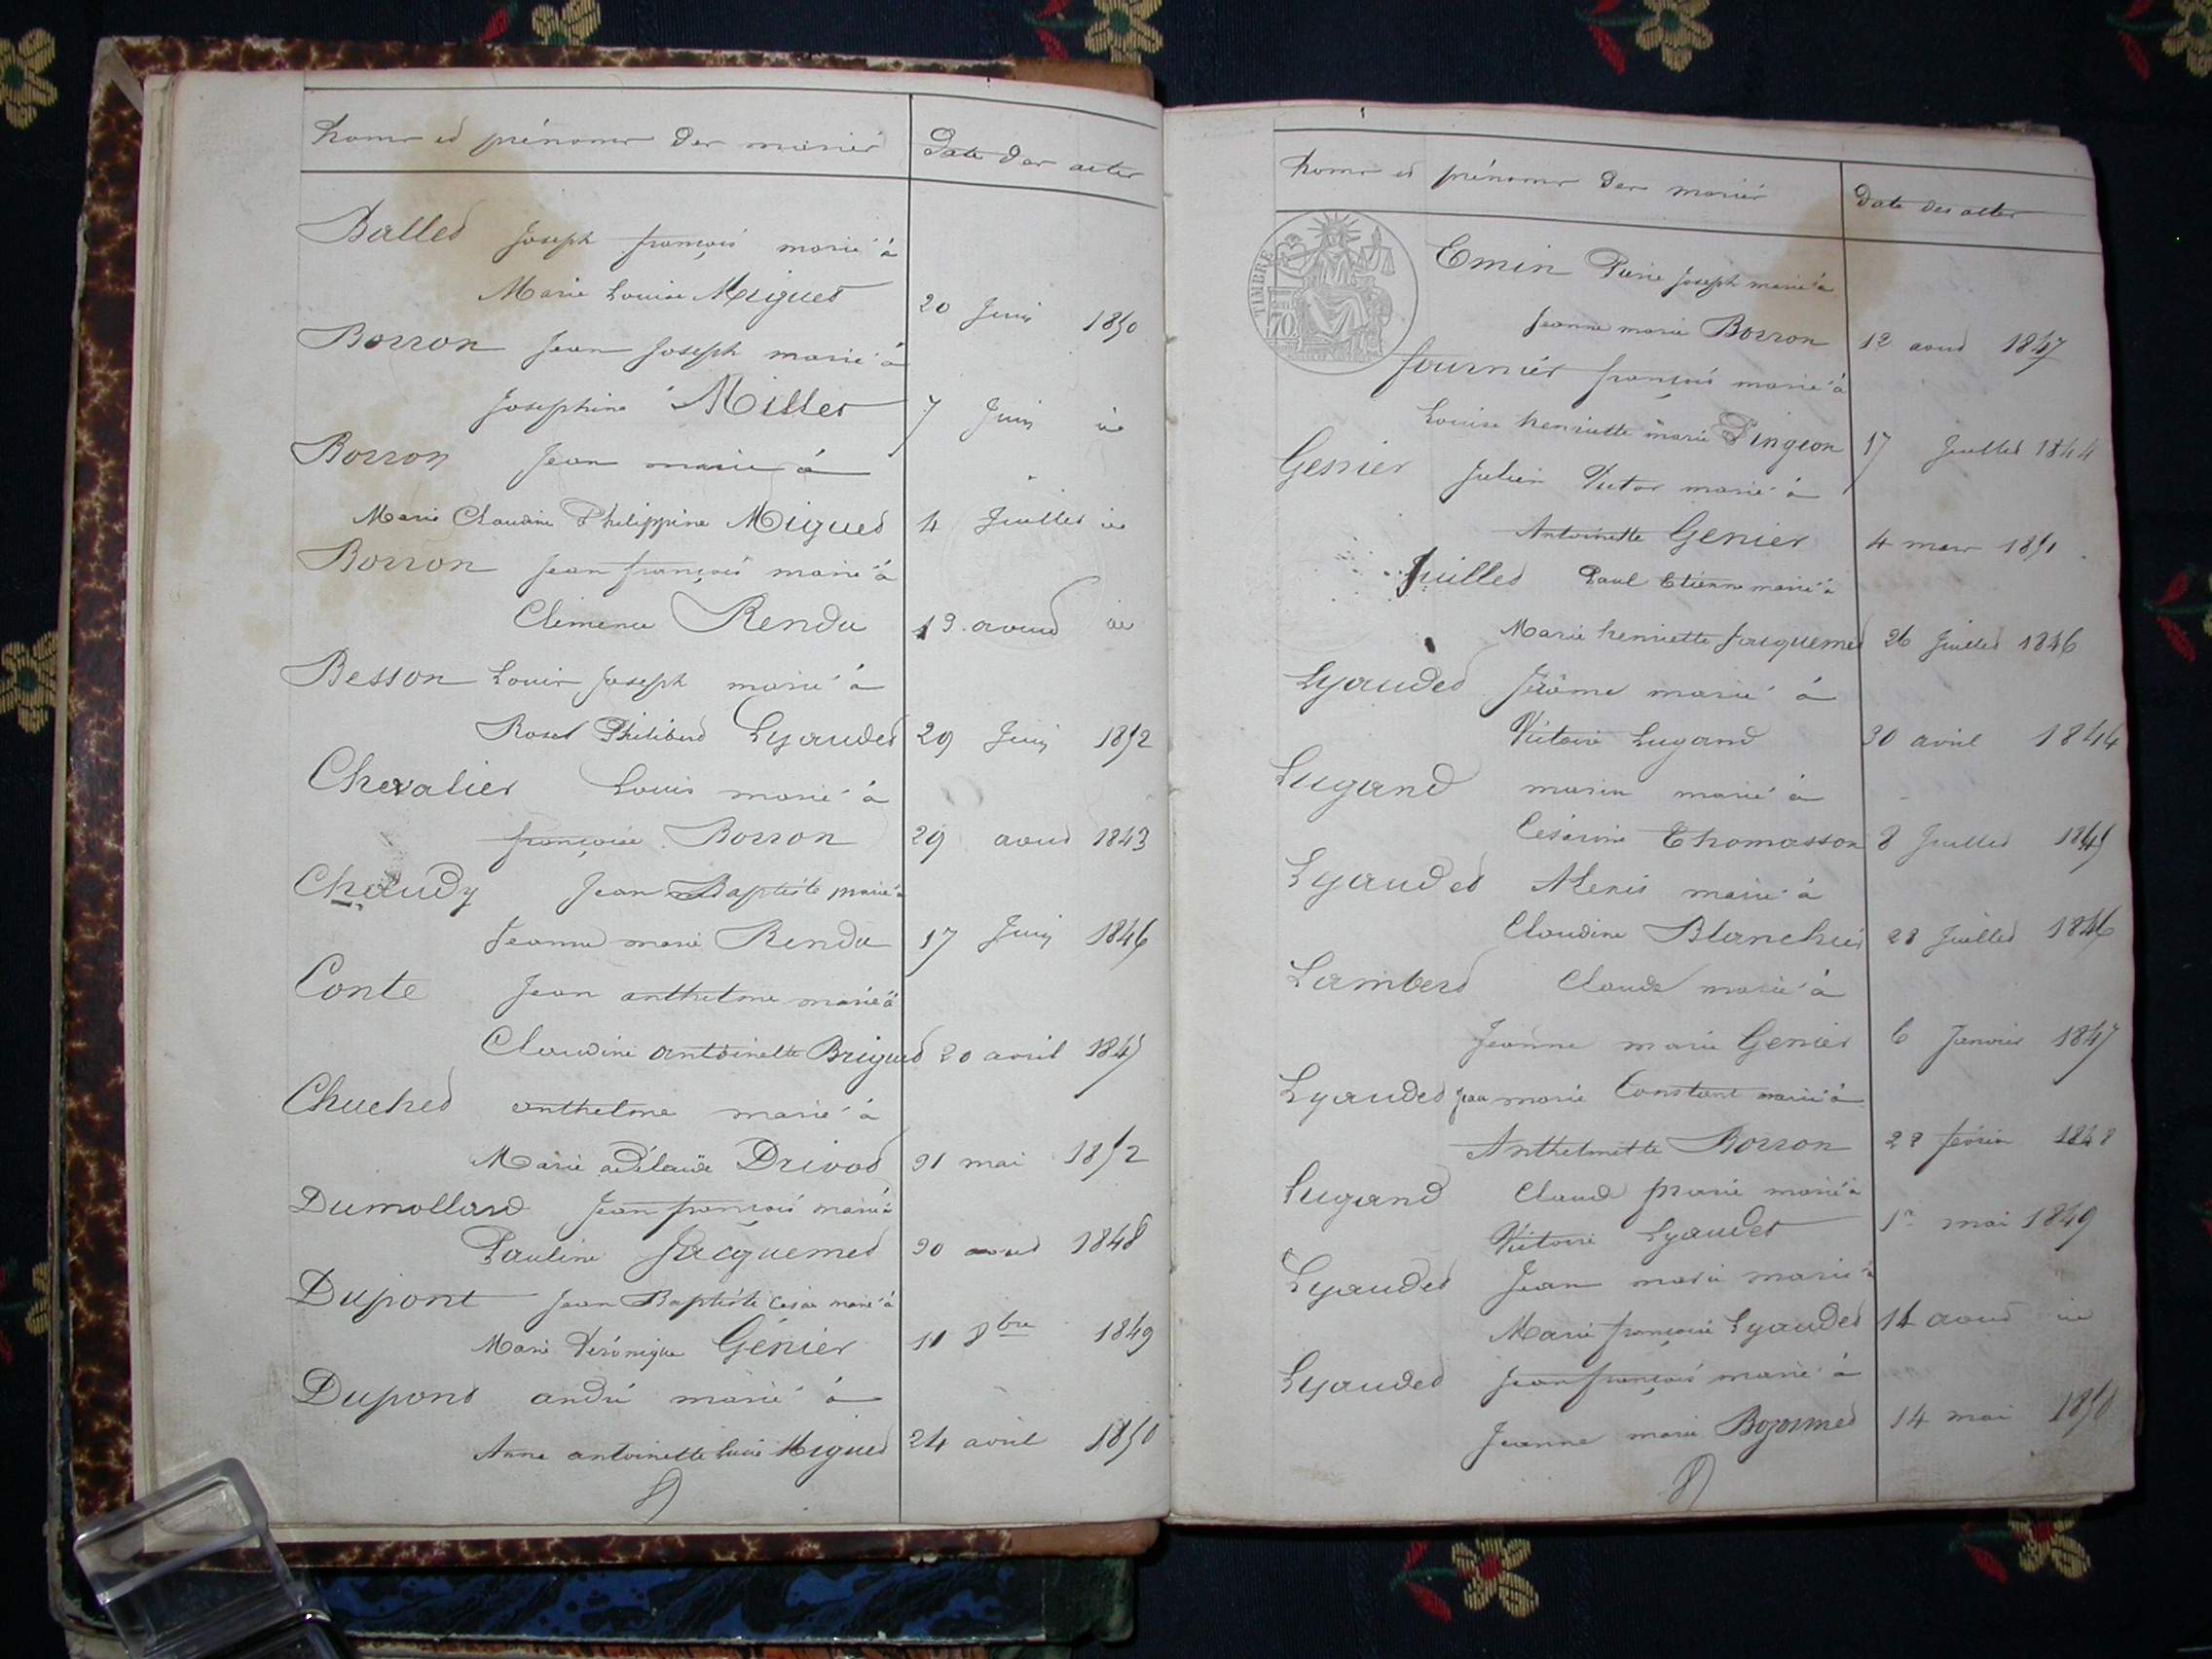 Noms et prénoms des mariés
Date des actes
Ballet Joseph françois marié à
Marie Louise Miguet 20 Juin 1850
Borron Jean Joseph marié à
Josephine Millet 7 Juin id
Borron Jean marié à
Marie Claudine Philippine Miguet 4 Juillet id
Borron Jean françois marié à
Clémence Rendu 13 aout id
Besson Louis Joseph marié à
Philibert Lyaudet 29 Juin 1852
Chevalier Louis marié à
françoise Borron 29 aout 1843
Chaudy Jean Baptiste marié à
Jeanne marie Rendu 17 Juin 1846
Conte Jean anthelme marié à
Claudine antoinette Briguet 20 avril 1847
Chuchet anthelme marié à
Marie adélaïde Drivot 31 mai 1852
Dumollard Jean françois marié à
Pauline Jacquemet 30 aout 1848
Dupont Jean Baptiste César marié à
Marie Véronique Génier 11 8bre 1849
Dupont andré marié à
Anne antoinette Lucie Miguet 24 avril 1850
Noms et prénoms des mariés
Date des actes
TIMBRE
70
Emin Pierre Joseph marié à
Jeanne marie Borron 12 aout 1847
fournier françois marié à
Louise henriette marie Pingeon 17 Juillet 1844
Genier Julien Victor marié à
Antoinette Genier 4 mars 1851
Juillet Paul Etienne marié à
Marie henriette Jacquemet 26 Juillet 1846
Lyaudet Jérôme marié à
Victoire Lugand 30 avril 1844
Lugand marin marié à
Césarine Thomasson 8 Juillet 1845
Lyaudet Alexis marié à
Claudine Blanchet 28 Juillet 1846
Lambert Claude marié à
Jeanne marie Genier 6 Janvier 1847
Lyaudet Jean marie Constant marié à
Anthelmette Borron 28 février 1848
Lugand Claude marie marié à
Victoire Lyaudet 1er mai 1849
Lyaudet Jean marie marié à
Marie françoise Lyaudet 14 aout id
Lyaudet Jean françois marié à
Jeanne marie Bozonnet 14 mai 1850